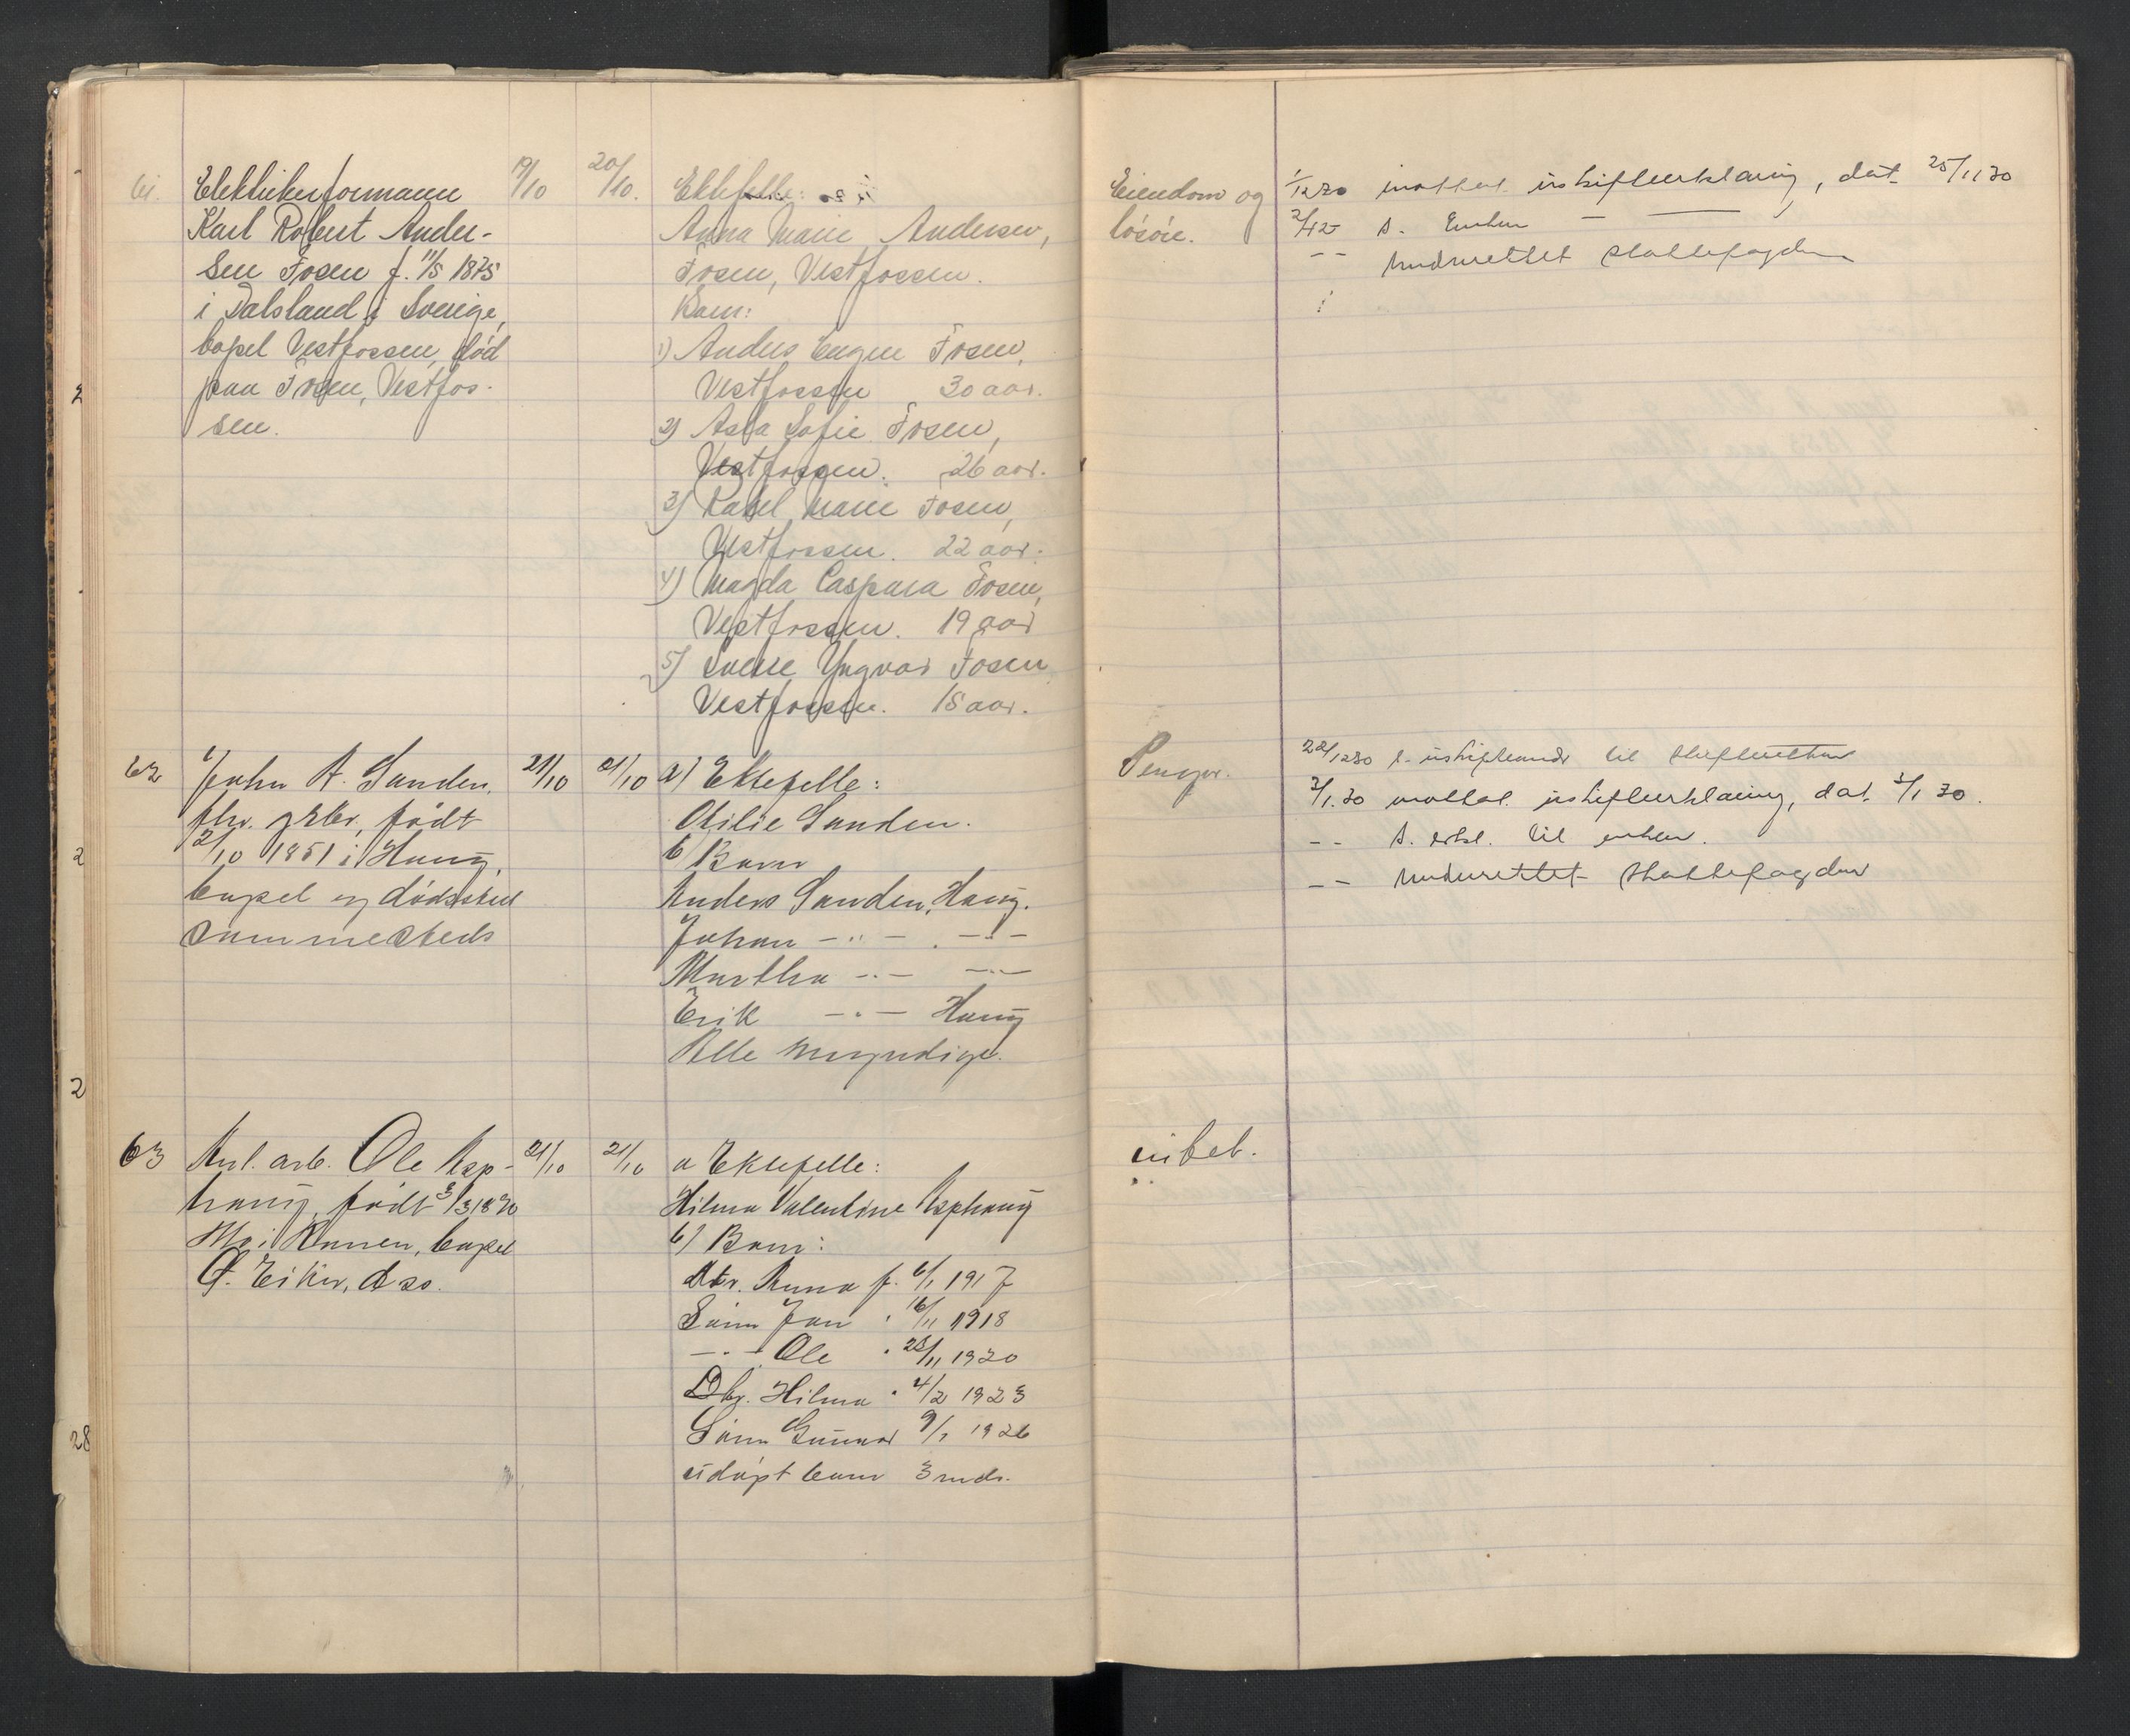 61. Elektrikerformann 19/10 20/10. Ektefelle:
Karl Robert Ander-
sen Fosen f. 11/5 1875
i Dalsland i Sverige,
bopel Vestfossen, død
paa Fosen, Vestfos-
sen.
Anna Marie Andersen,
Fosen, Vestfossen.
Barn:
1) Anders Eugen Fosen,
Vestfossen 30 aar.
2) Asta Sofie Fosen,
Vestfossen. 26 aar.
3) Rakel Marie Fosen,
Vestfossen. 22 aar.
4) Magda Caspara Fosen,
Vestfossen. 19 aar
5) Sverre Yngvar Fosen
Vestfossen. 15 aar.
Eiendom og
løsøre.
1/12 30 mottat uskifteerklæring, dat. 25/11 30
2/12 s. Enken — —
-- Underrettet skattefogden
62 John A. Sanden, 21/10 21/10 a) Ektefelle:
fhv. grbr., født
2/10 1851 i Haug,
bopel og dødssted
sammesteds
Otilie Sanden.
b) Barn
Anders Sanden, Haug.
Johan -"- . -"-
Martha -"- -"-
Erik -"- Haug
Alle myndige.
Penger.
22/12 30 s. til skifteretten
3/1.30 mottat uskifteerklæring, dat. 3/1 30.
-- s. erkl. til enken.
-- Underrettet skattefogden
63 Anl. arb. Ole Asp- 21/10 21/10 a Ektefelle:
haug, født 3/3 1890
Mo i Ranen, bopel
Ø. Eiker, d so.
Hilma Valentine Asphaug
b) Barn:
Dtr. Anna f. 6/1 1917
Sønn Jan " 16/11 1918
-"- Ole " 28/11 1920
Dtr. Hilma " 4/2 1923
Sønn Gunnar 9/1 1926
udøpt barn 3 mdr.
ubet.
2
2
2
28